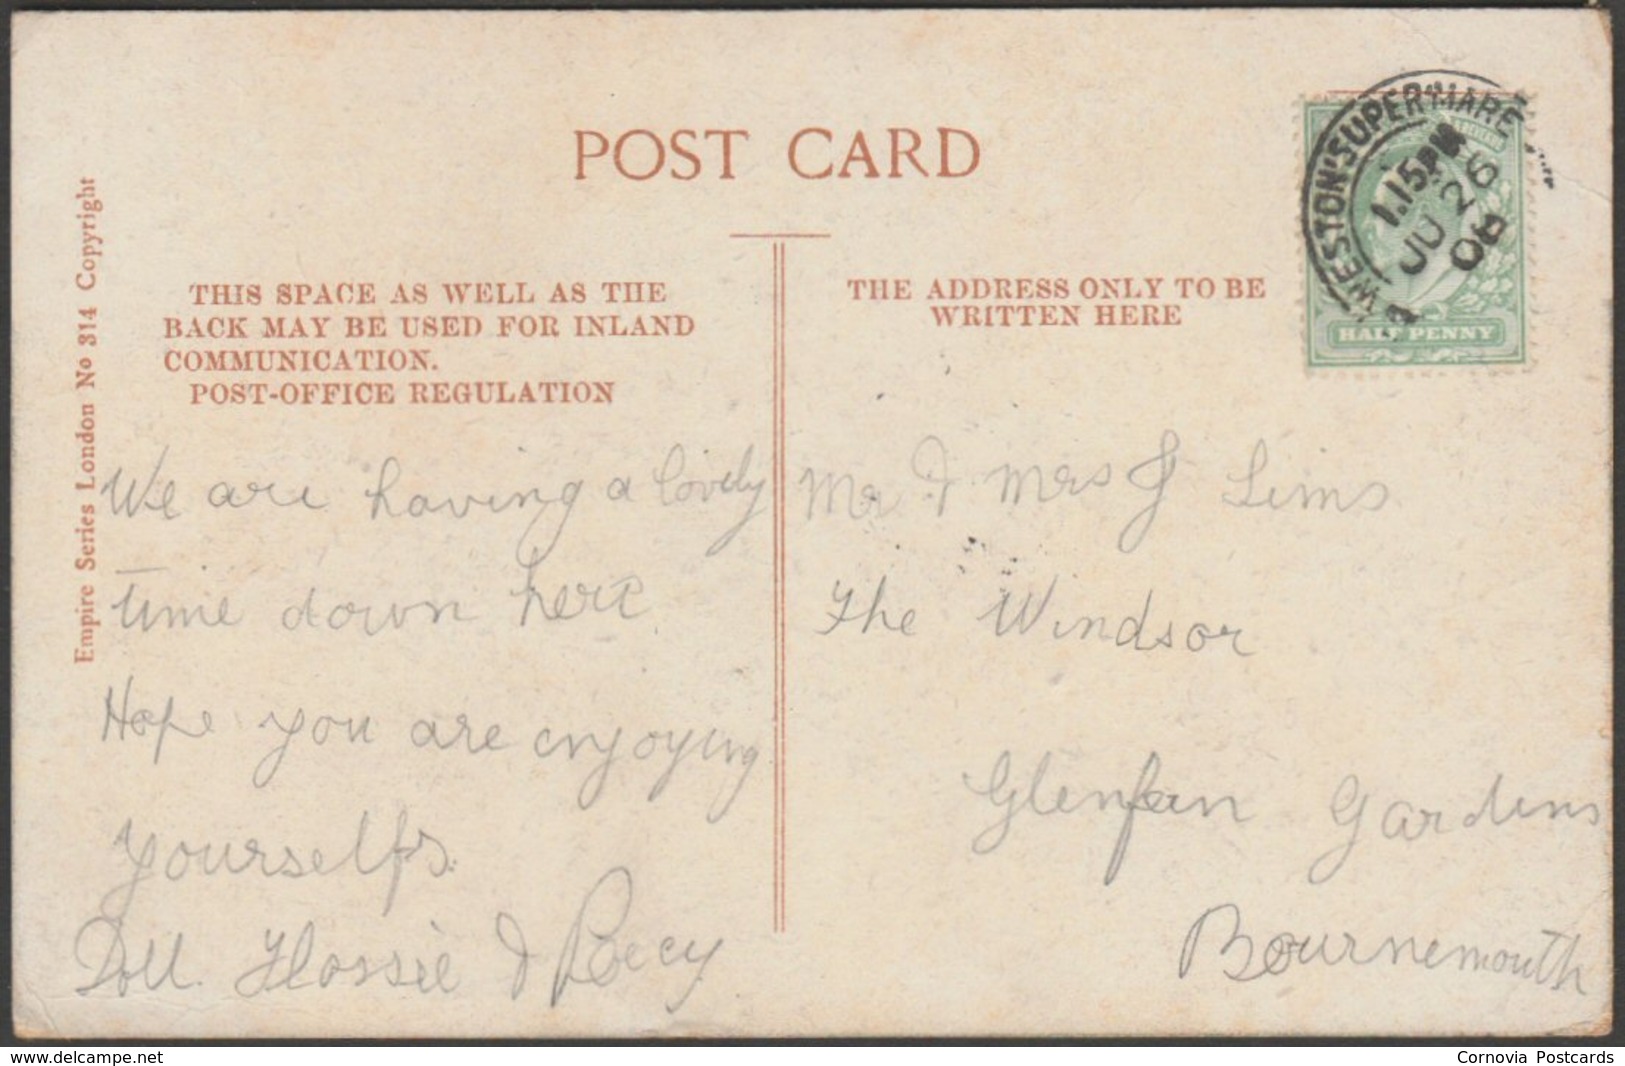 POST CARD
Empire Series London No 314 Copyright
THIS SPACE AS WELL AS THE
BACK MAY BE USED FOR INLAND
COMMUNICATION.
POST-OFFICE REGULATION
THE ADDRESS ONLY TO BE
WRITTEN HERE
WESTON-SUPER-MARE
1.15PM
JU 26
06
HALF PENNY
We are having a lovely
time down here
Hope you are enjoying
yourselfs.
Doll. Flossie & Percy
Mr & Mrs J Sims
The Windsor
Glenfern Gardens
Bournemouth
delcampe.net
Cornovia Postcards